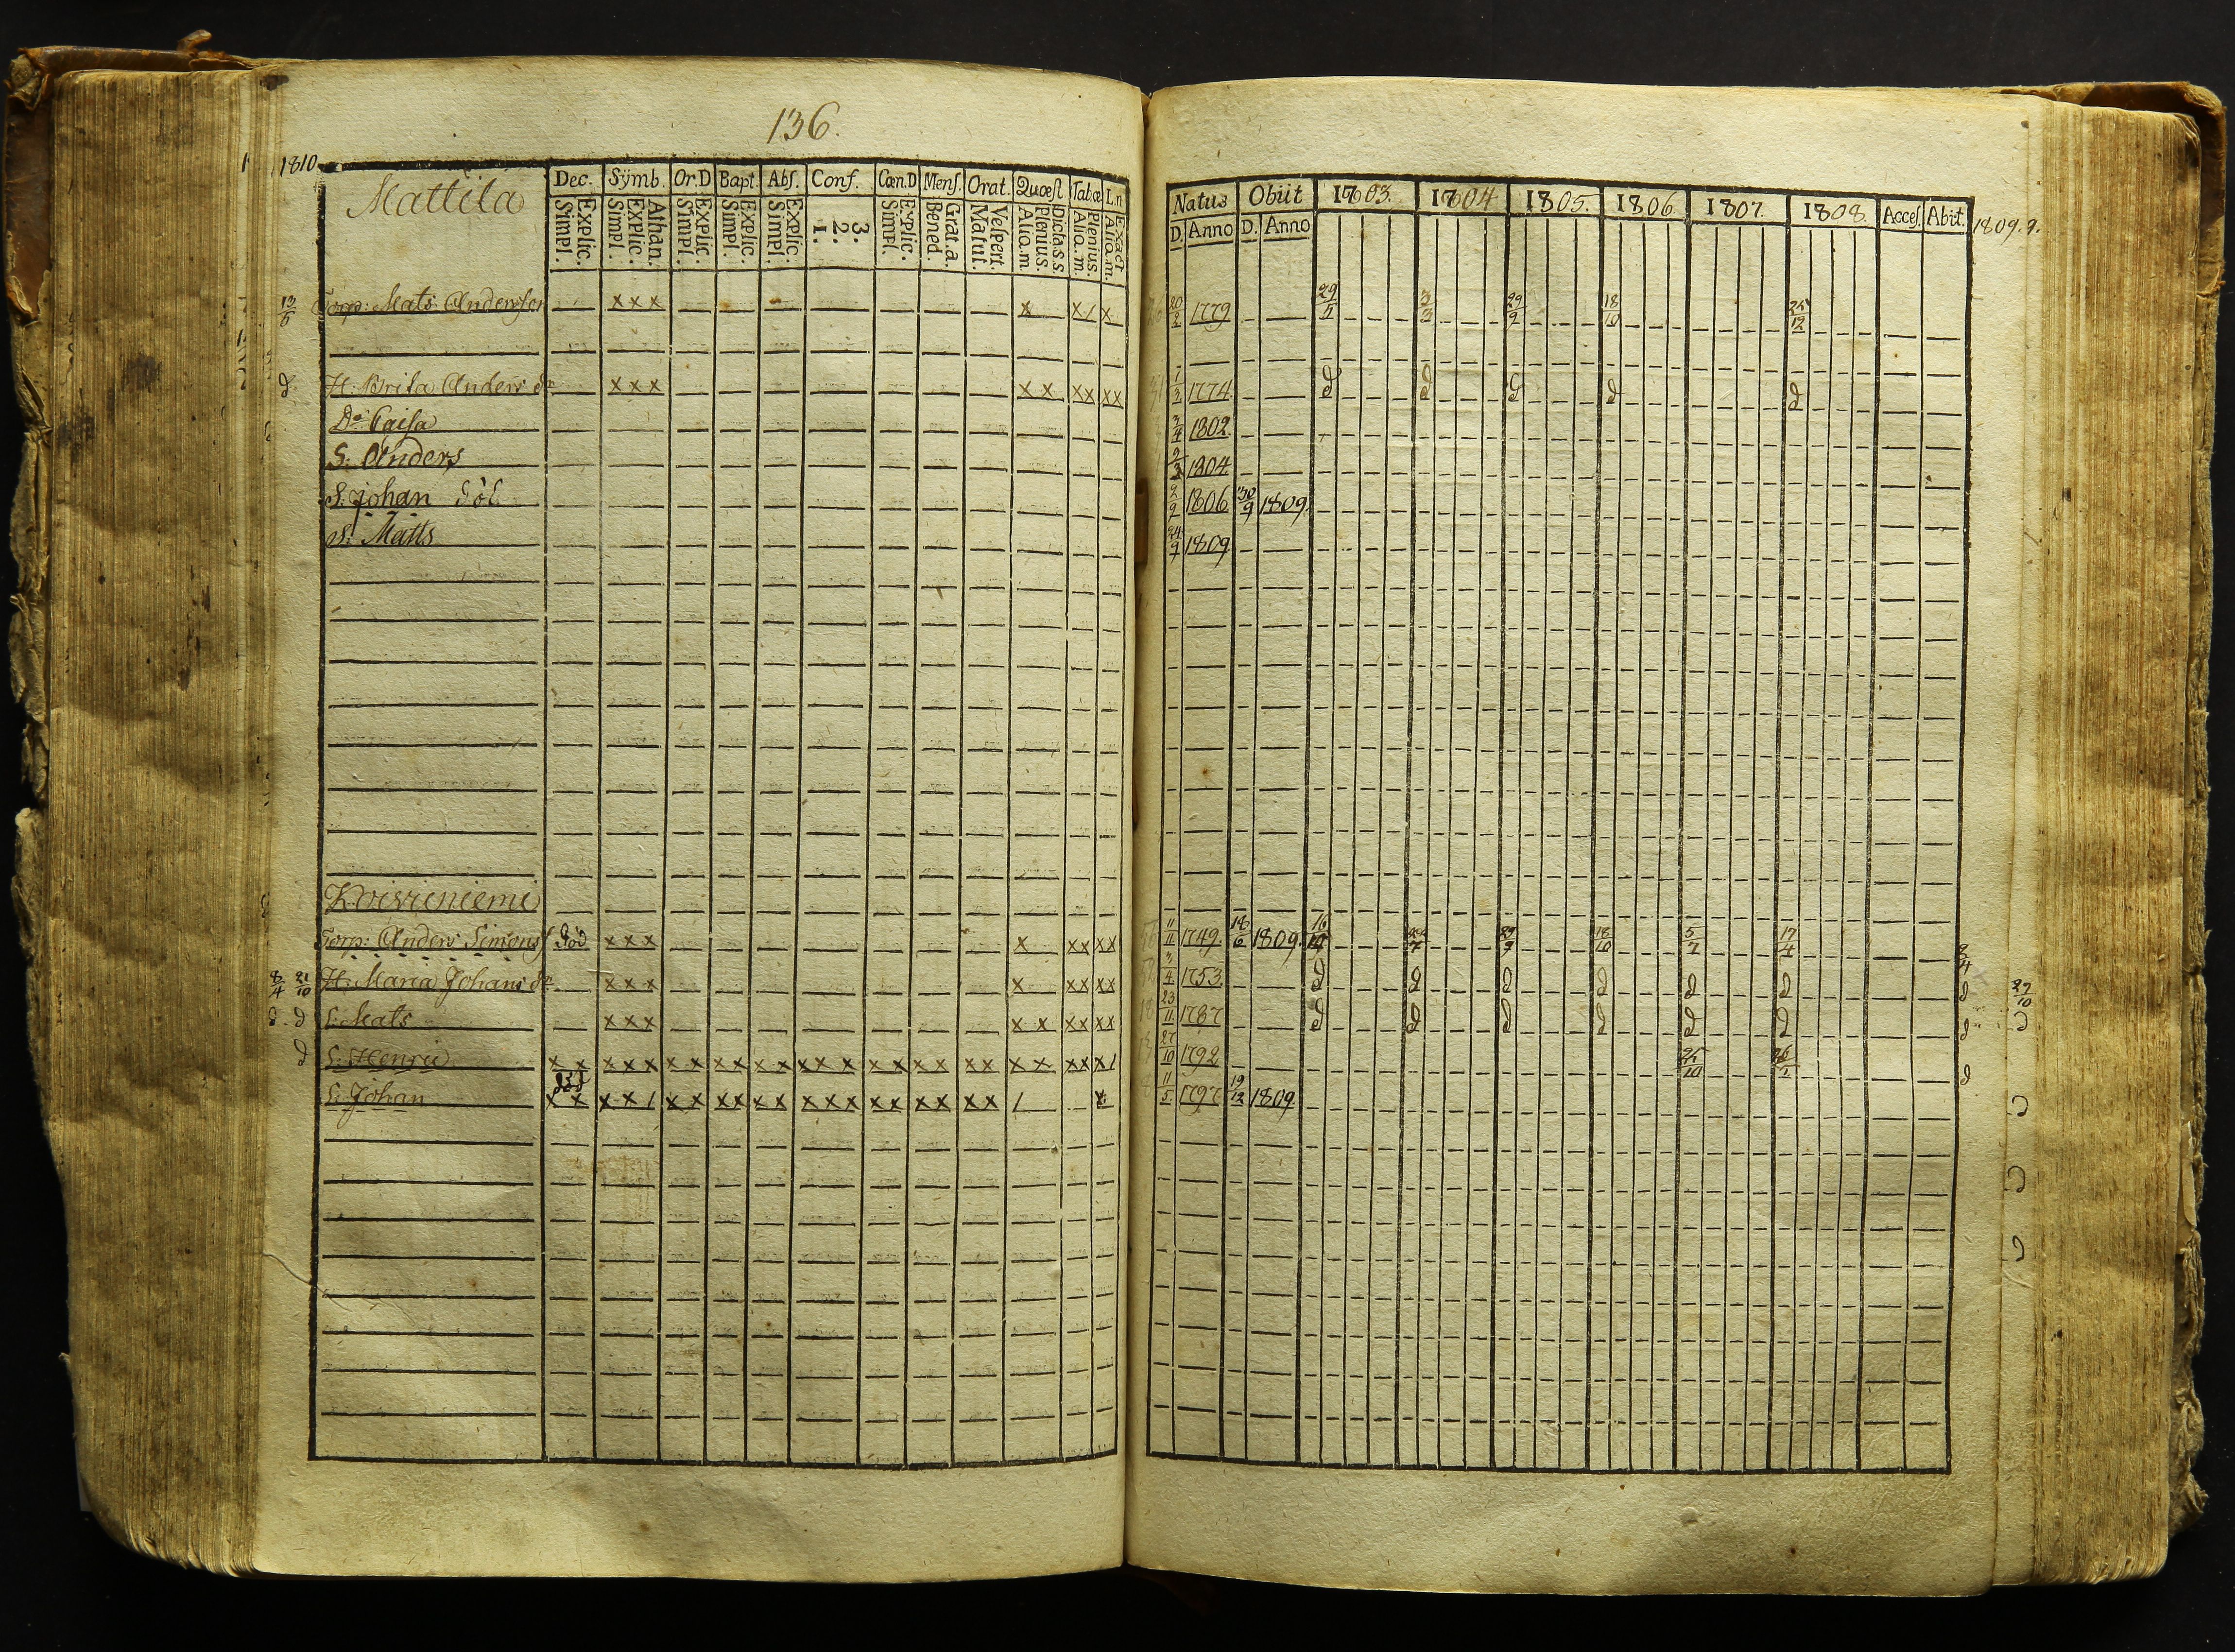 136.
1810
Mattila
Dec. Symb. Or.D Bapt. Abs. Conf. Cœn.D Mens. Orat. Quæst Tab.œ L.n
Explic. Simpl. Athan. Explic. Simpl. Explic. Simpl. Explic. Simpl. Explic. Simpl. 3. 2. 1. Explic. Simpl. Grat.a. Bened. Vespert. Matut. Dicta.s.s. Plenius. Aliq.m Plenius. Aliq.m. Exact Aliq.m.
Natus Obiit 1803. 1804 1805. 1806 1807. 1808. Acces. Abit. 1809.
D. Anno D. Anno
Torp: Mats Anderson x x x x x / x 20/2 1779 29/5 3/3 29/9 18/10 25/12
d H: Brita Anders dr x x x x x x x x x 1774 d d d d d
Dr Cajsa 3/4 1802
S. Anders 1804
S. Johan död 2/9 1806 30/9 1809.
S: Matts 24/9 1809
Torp: Anders Simons död x x x x x x x x 11/11 1749. 18/6 1809. 18/10 5/7 17/4 8/4
8/4 21/10 H: Maria Johans dr x x x x x x x x 3/4 1753 d d d d d d d 29/10
d d S. Mats x x x x x x x x x 23/11 1787 d d d d d d d
d S. Henric x x x x x x x x x x x x x x x x x x x x x x x x x x / 27/10 1792 25/10 d
S. Johan död x x x x / x x x x x x x x x x x x x x x x / x 11/5 1797 19/12 1809